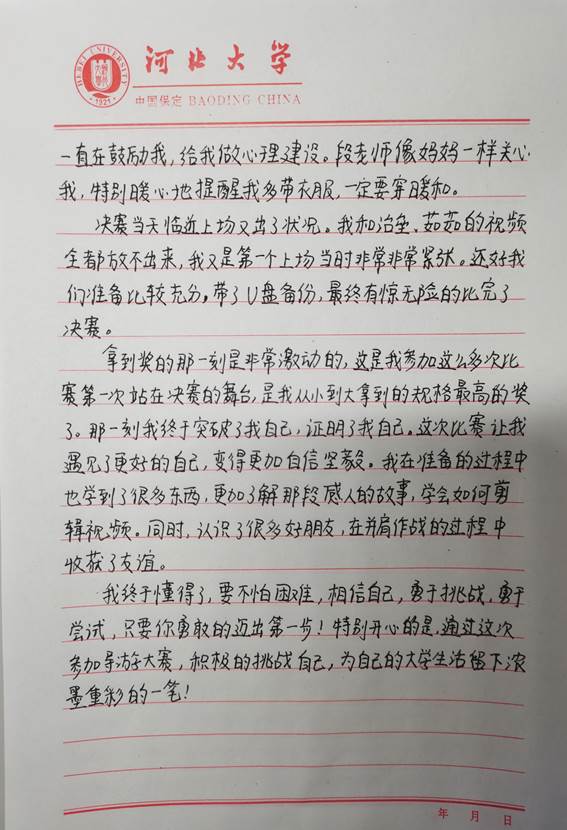 HEBEI UNIVERSITY
1921
河北大学
中国保定 BAODING CHINA
一直在鼓励我，给我做心理建设。段老师像妈妈一样关心
我，特别暖心地提醒我多带衣服，一定要穿暖和。
决赛当天临近上场又出了状况。我和冶垒、茹茹的视频
全都放不出来，我又是第一个上场当时非常非常紧张。还好我
们准备比较充分，带了U盘备份，最终有惊无险的比完了
决赛。
拿到奖的那一刻是非常激动的，这是我参加这么多次比
赛第一次站在决赛的舞台，是我从小到大拿到的规格最高的奖
了。那一刻我终于突破了我自己，证明了我自己。这次比赛让我
遇见了更好的自己，变得更加自信坚毅。我在准备的过程中
也学到了很多东西，更加了解那段感人的故事，学会如何剪
辑视频。同时，认识了很多好朋友，在并肩作战的过程中
收获了友谊。
我终于懂得了，要不怕困难，相信自己，勇于挑战，勇于
尝试，只要你勇敢的迈出第一步！特别开心的是，通过这次
参加导游大赛，积极的挑战自己，为自己的大学生活留下浓
墨重彩的一笔！
年 月 日